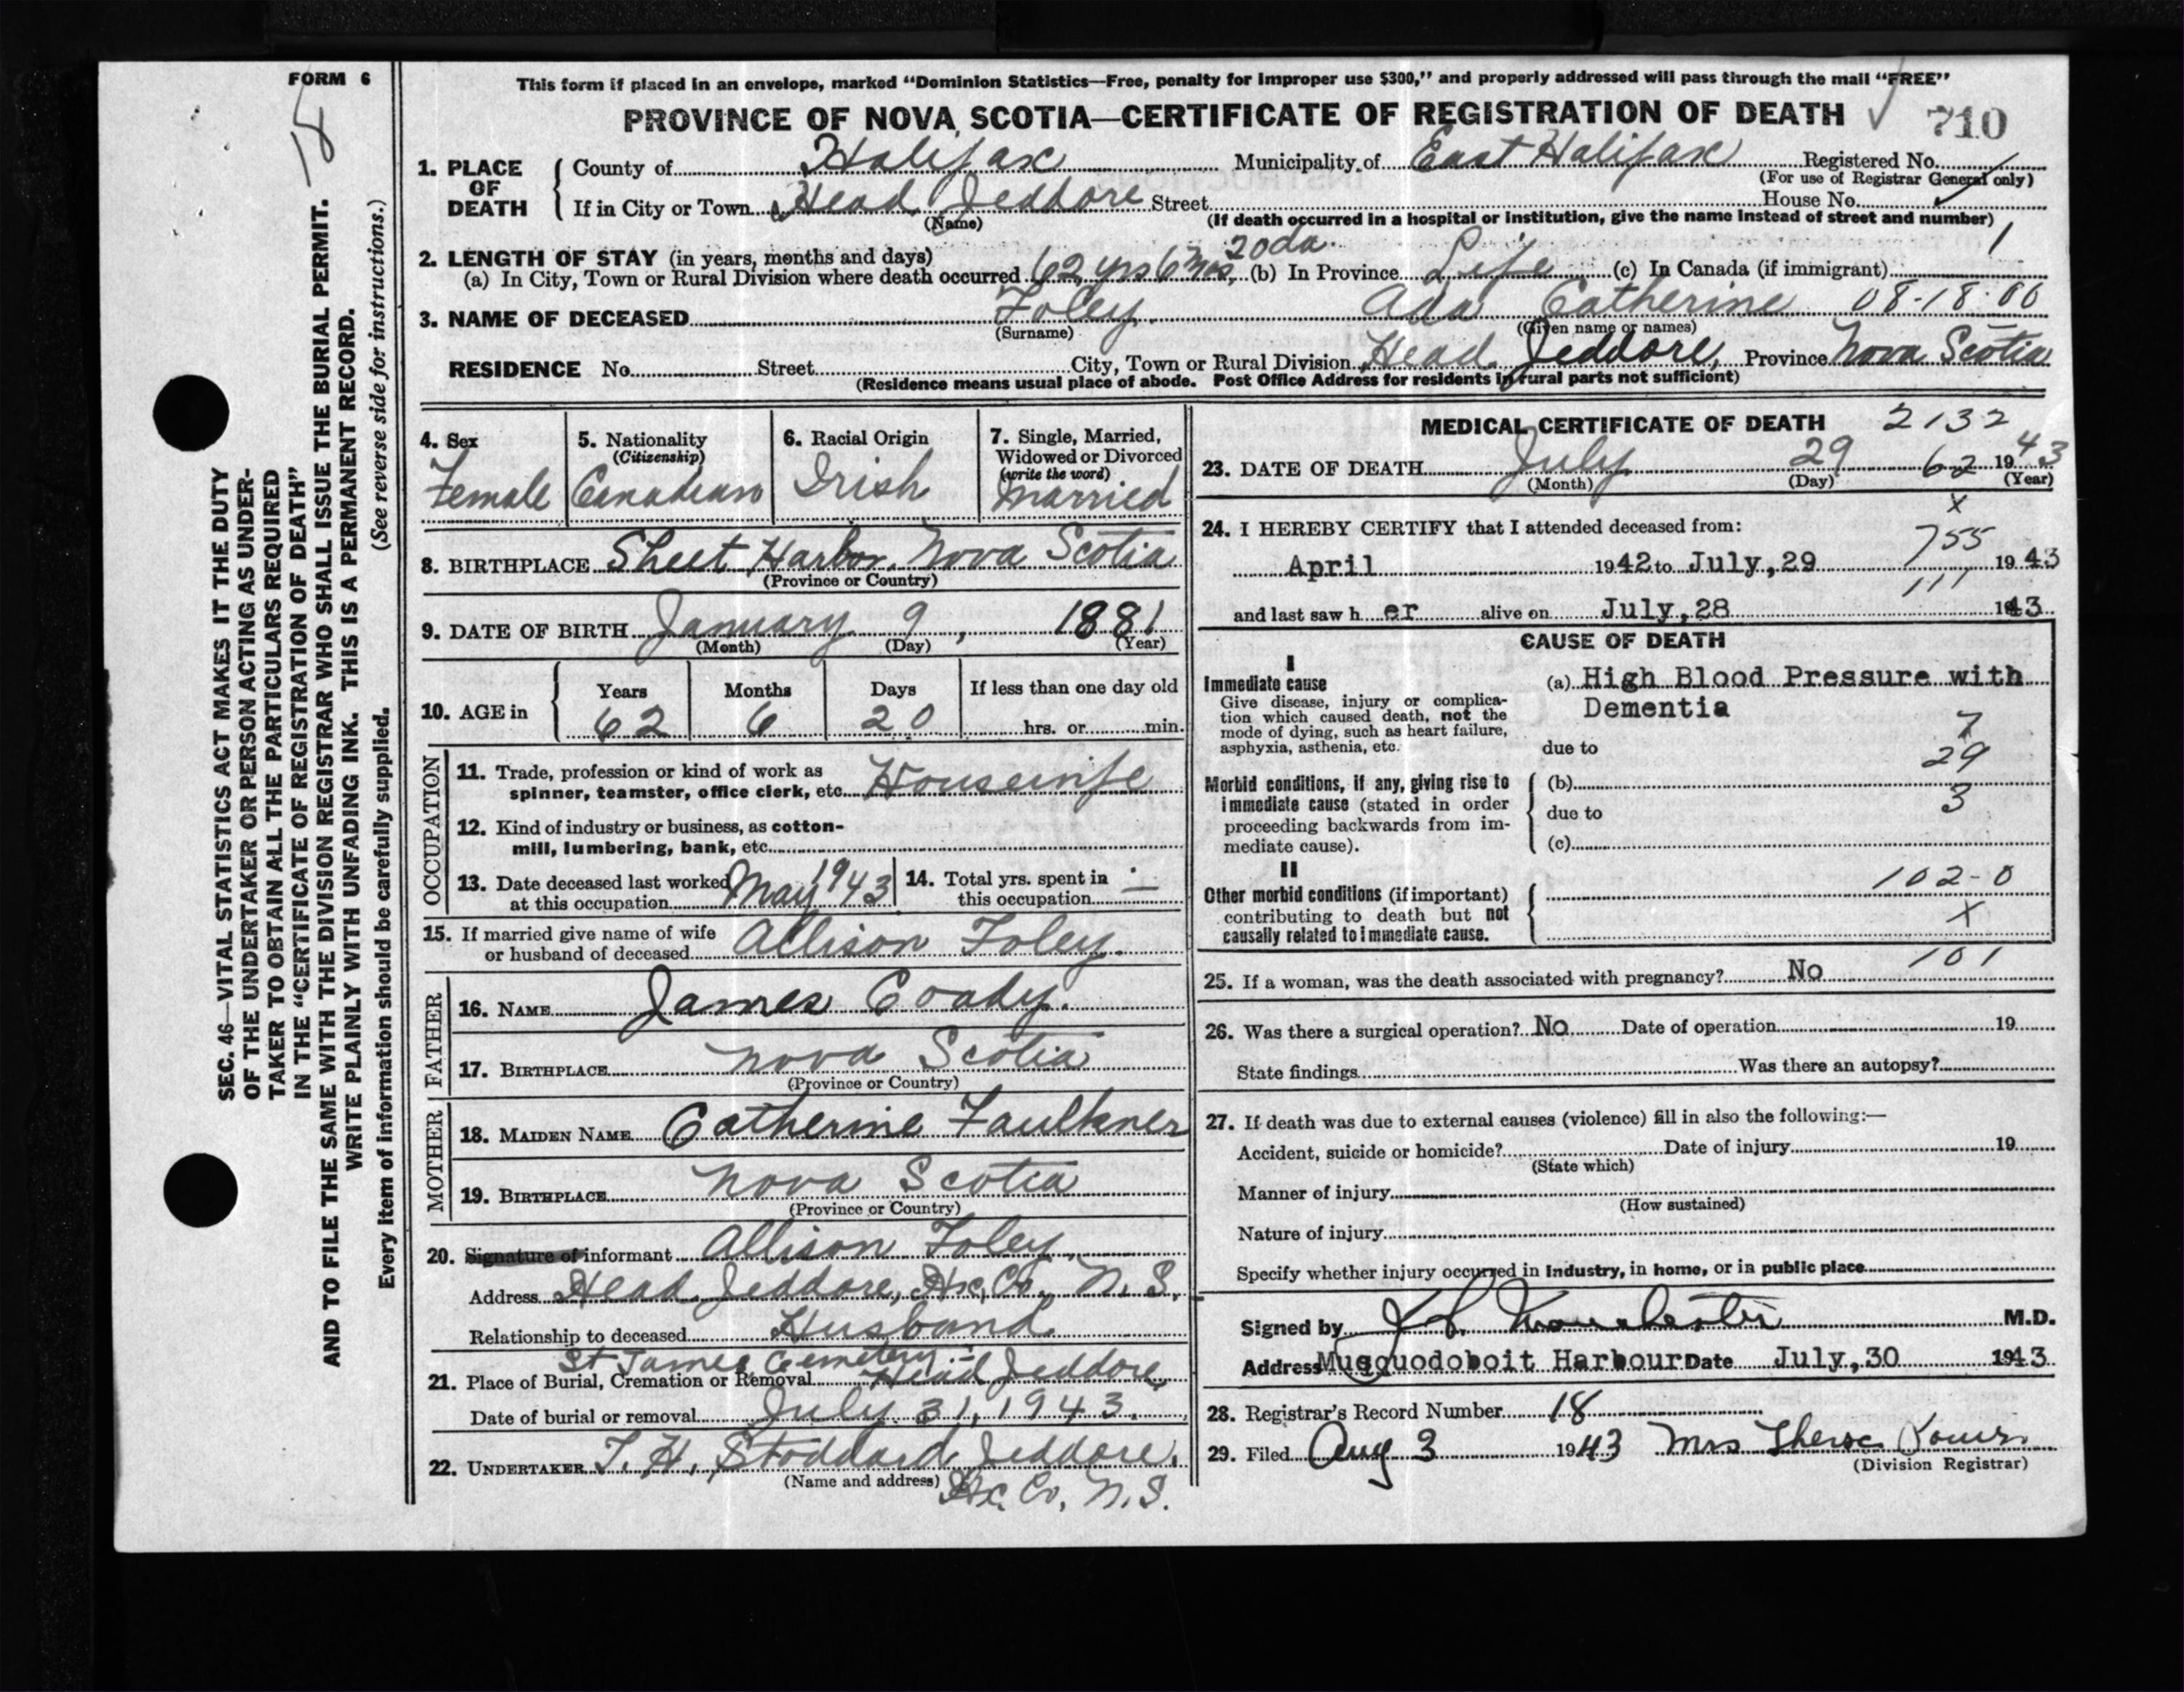 FORM 6
18
SEC. 46—VITAL STATISTICS ACT MAKES IT THE DUTY
OF THE UNDERTAKER OR PERSON ACTING AS UNDER-
TAKER TO OBTAIN ALL THE PARTICULARS REQUIRED
IN THE "CERTIFICATE OF REGISTRATION OF DEATH"
AND TO FILE THE SAME WITH THE DIVISION REGISTRAR WHO SHALL ISSUE THE BURIAL PERMIT.
WRITE PLAINLY WITH UNFADING INK. THIS IS A PERMANENT RECORD.
(See reverse side for instructions.)
Every item of information should be carefully supplied.
This form if placed in an envelope, marked "Dominion Statistics—Free, penalty for improper use $300," and properly addressed will pass through the mail "FREE"
PROVINCE OF NOVA SCOTIA—CERTIFICATE OF REGISTRATION OF DEATH 710
1. PLACE OF DEATH County of Halifax Municipality of East Halifax Registered No.
(For use of Registrar General only)
If in City or Town Head Jeddore Street House No.
(Name) (If death occurred in a hospital or institution, give the name instead of street and number)
2. LENGTH OF STAY (in years, months and days) 1
(a) In City, Town or Rural Division where death occurred 62 yrs 6 mos, 20 da. (b) In Province Life (c) In Canada (if immigrant)
3. NAME OF DECEASED Foley Ada Catherine 08-18-00
(Surname) (Given name or names)
RESIDENCE No. Street City, Town or Rural Division Head Jeddore, Province Nova Scotia
(Residence means usual place of abode. Post Office Address for residents in rural parts not sufficient)
4. Sex
Female
5. Nationality
(Citizenship)
Canadian
6. Racial Origin
Irish
7. Single, Married,
Widowed or Divorced
(write the word)
Married
8. BIRTHPLACE Sheet Harbor, Nova Scotia
(Province or Country)
9. DATE OF BIRTH January 9, 1881
(Month) (Day) (Year)
10. AGE in Years Months Days If less than one day old
62 6 20 hrs. or min.
OCCUPATION
11. Trade, profession or kind of work as
spinner, teamster, office clerk, etc. Housewife
12. Kind of industry or business, as cotton-
mill, lumbering, bank, etc.
13. Date deceased last worked
at this occupation May 1943
14. Total yrs. spent in
this occupation
15. If married give name of wife
or husband of deceased Allison Foley.
FATHER
16. NAME James Coady.
17. BIRTHPLACE Nova Scotia
(Province or Country)
MOTHER
18. MAIDEN NAME Catherine Faulkner
19. BIRTHPLACE Nova Scotia
(Province or Country)
20. Signature of informant Allison Foley,
Address Head Jeddore, Hx. Co. N. S.
Relationship to deceased Husband
St James Cemetery
21. Place of Burial, Cremation or Removal Head Jeddore,
Date of burial or removal July 31, 1943.
22. UNDERTAKER T. H. Stoddard Jeddore,
(Name and address) Hx. Co, N. S.
MEDICAL CERTIFICATE OF DEATH 2132
23. DATE OF DEATH July 29 62 1943
(Month) (Day) (Year)
x
24. I HEREBY CERTIFY that I attended deceased from:
755
April 1942 to July, 29 1943
111
and last saw h er alive on July, 28 1943
CAUSE OF DEATH
I
Immediate cause
Give disease, injury or complica-
tion which caused death, not the
mode of dying, such as heart failure,
asphyxia, asthenia, etc.
(a) High Blood Pressure with
Dementia
7
due to
29
Morbid conditions, if any, giving rise to
immediate cause (stated in order
proceeding backwards from im-
mediate cause).
(b)
3
due to
(c)
II
Other morbid conditions (if important)
contributing to death but not
causally related to immediate cause.
102-0
X
101
25. If a woman, was the death associated with pregnancy? No
26. Was there a surgical operation? No Date of operation 19
State findings Was there an autopsy?
27. If death was due to external causes (violence) fill in also the following:—
Accident, suicide or homicide? Date of injury 19
(State which)
Manner of injury
(How sustained)
Nature of injury
Specify whether injury occurred in industry, in home, or in public place
Signed by Manchester M.D.
Address Musquodoboit Harbour Date July, 30 1943
28. Registrar's Record Number 18
29. Filed Aug 3 1943 Mrs
(Division Registrar)